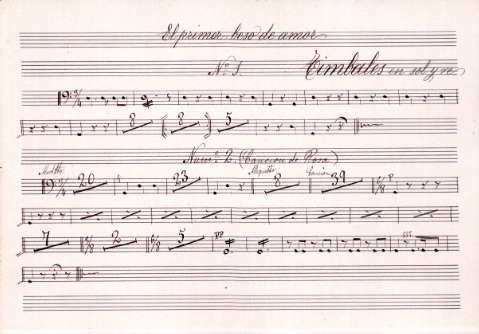 El primer beso de amor
Nº 1. Timbales en sol y re
8 8 5
Numº 2. (Cancion de Rosa)
20 23 8 39
7 2 5